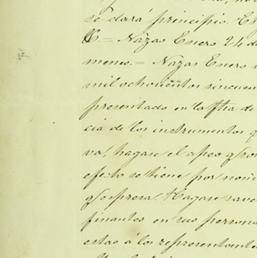 se dará principio. 
C. = Nazas Enero 24 de
= Nazas Enero
mil ochocientos cincuen
presentado en la fha de
cia de los instrumentos q
va, hagase el apeo y
efecto se tiene por
y espresa. Hagase saver
finantes en sus personas
estas á los representante